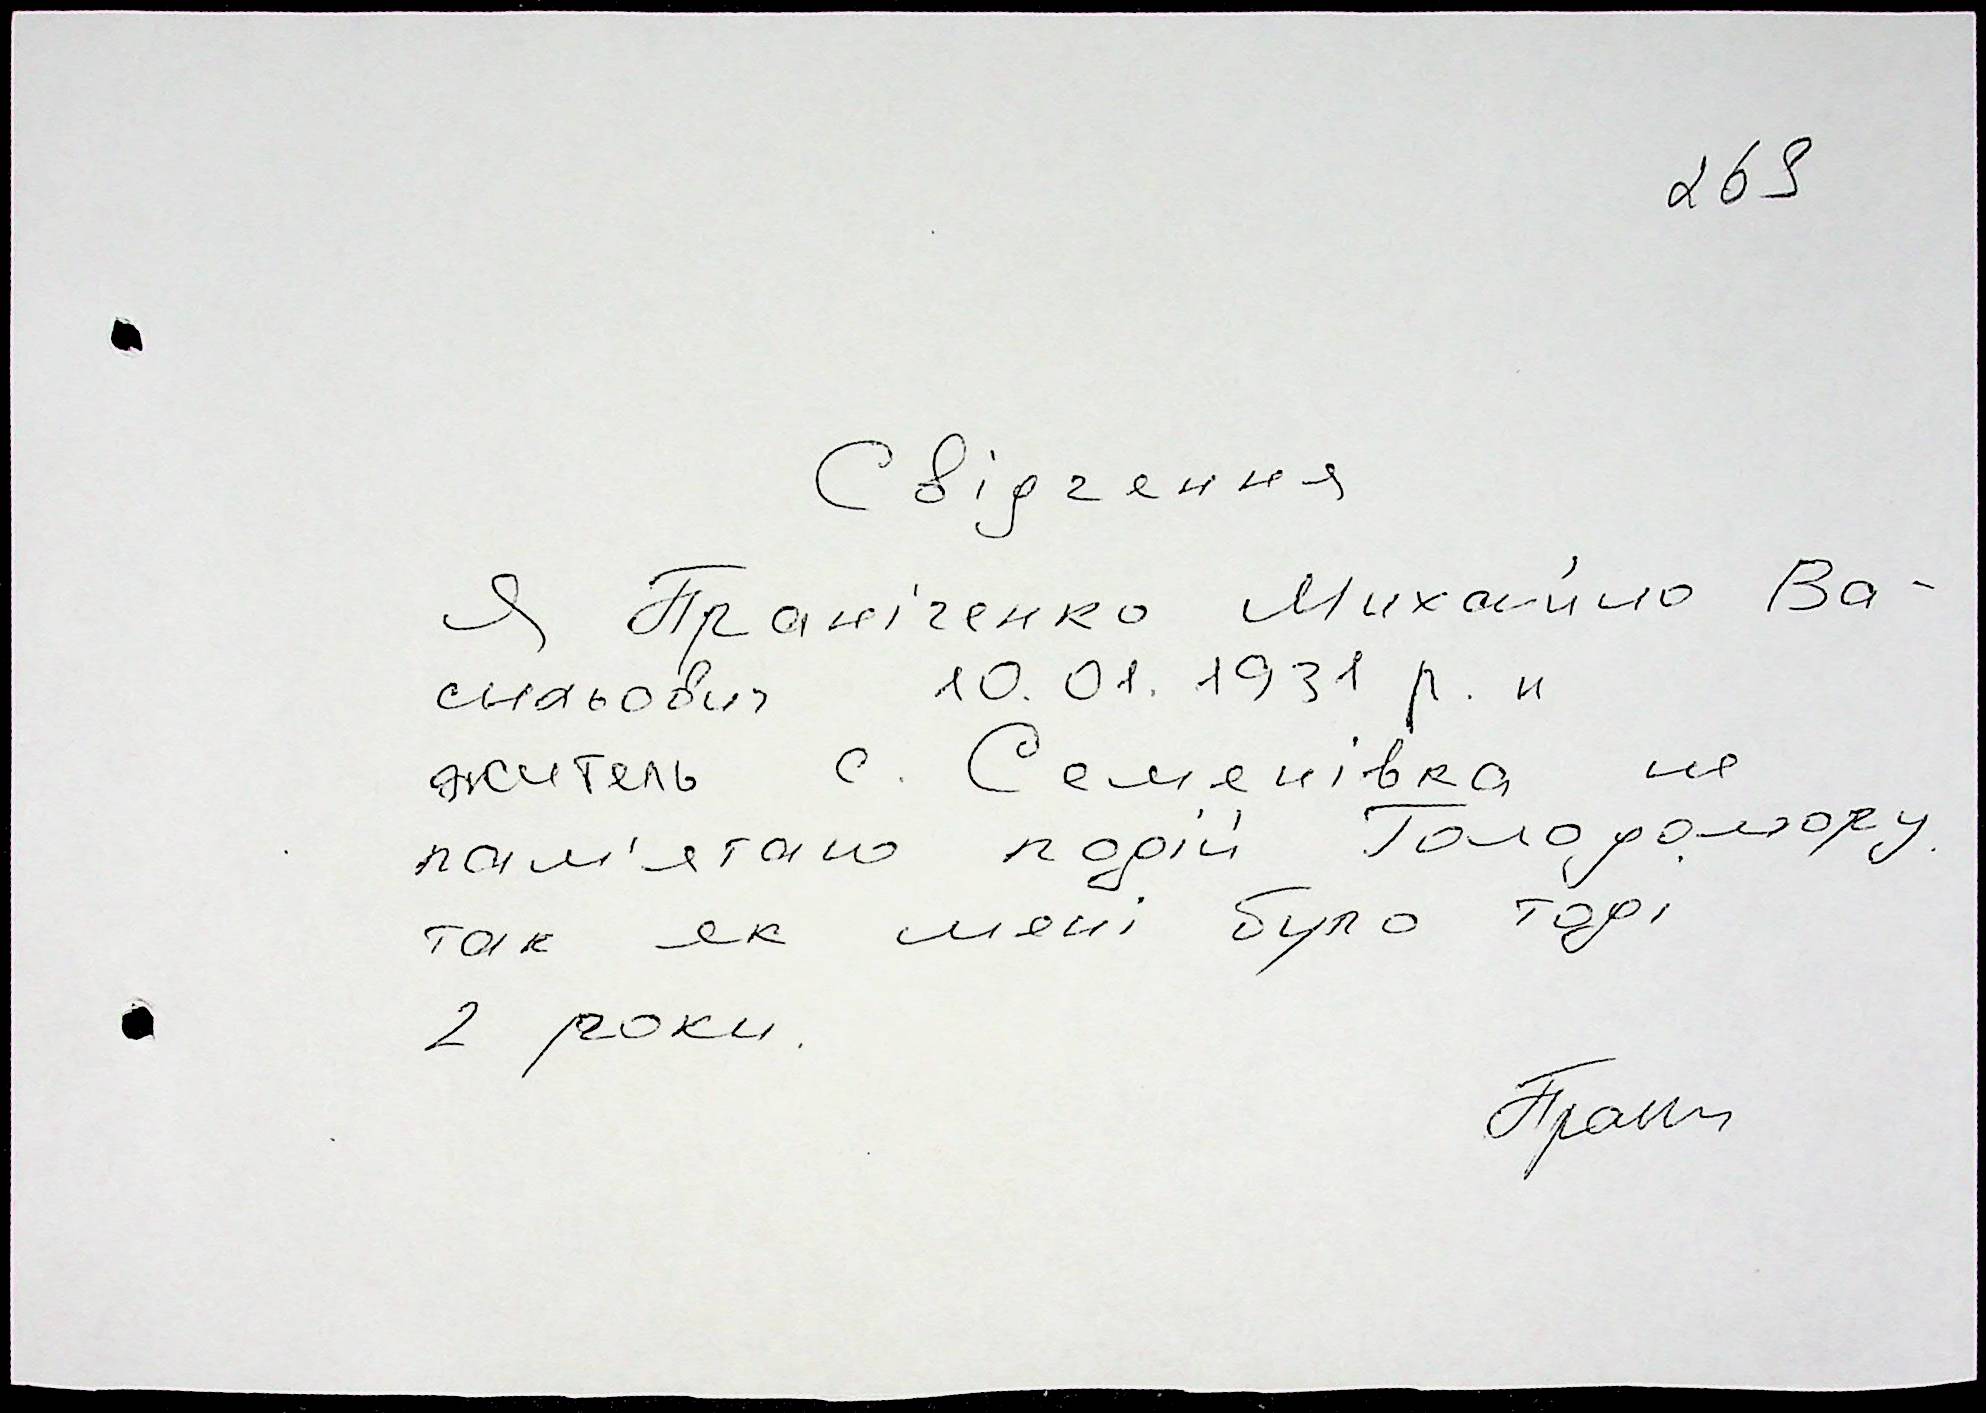 269
Свідчення
Я Праніченко Михайло Ва-
сильович 10.01.1931 р. н
житель с. Семенівка не
пам'ятаю подій Голодомору.
так як мені було тоді
2 роки.